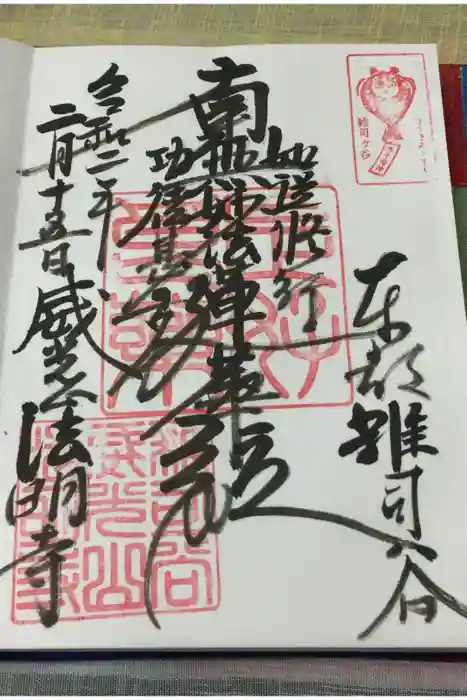 雑司ケ谷
東都雑司ヶ谷
如説修行
南無妙法蓮華経
功徳甚多
令和二年
二月十五日
威光山法明寺